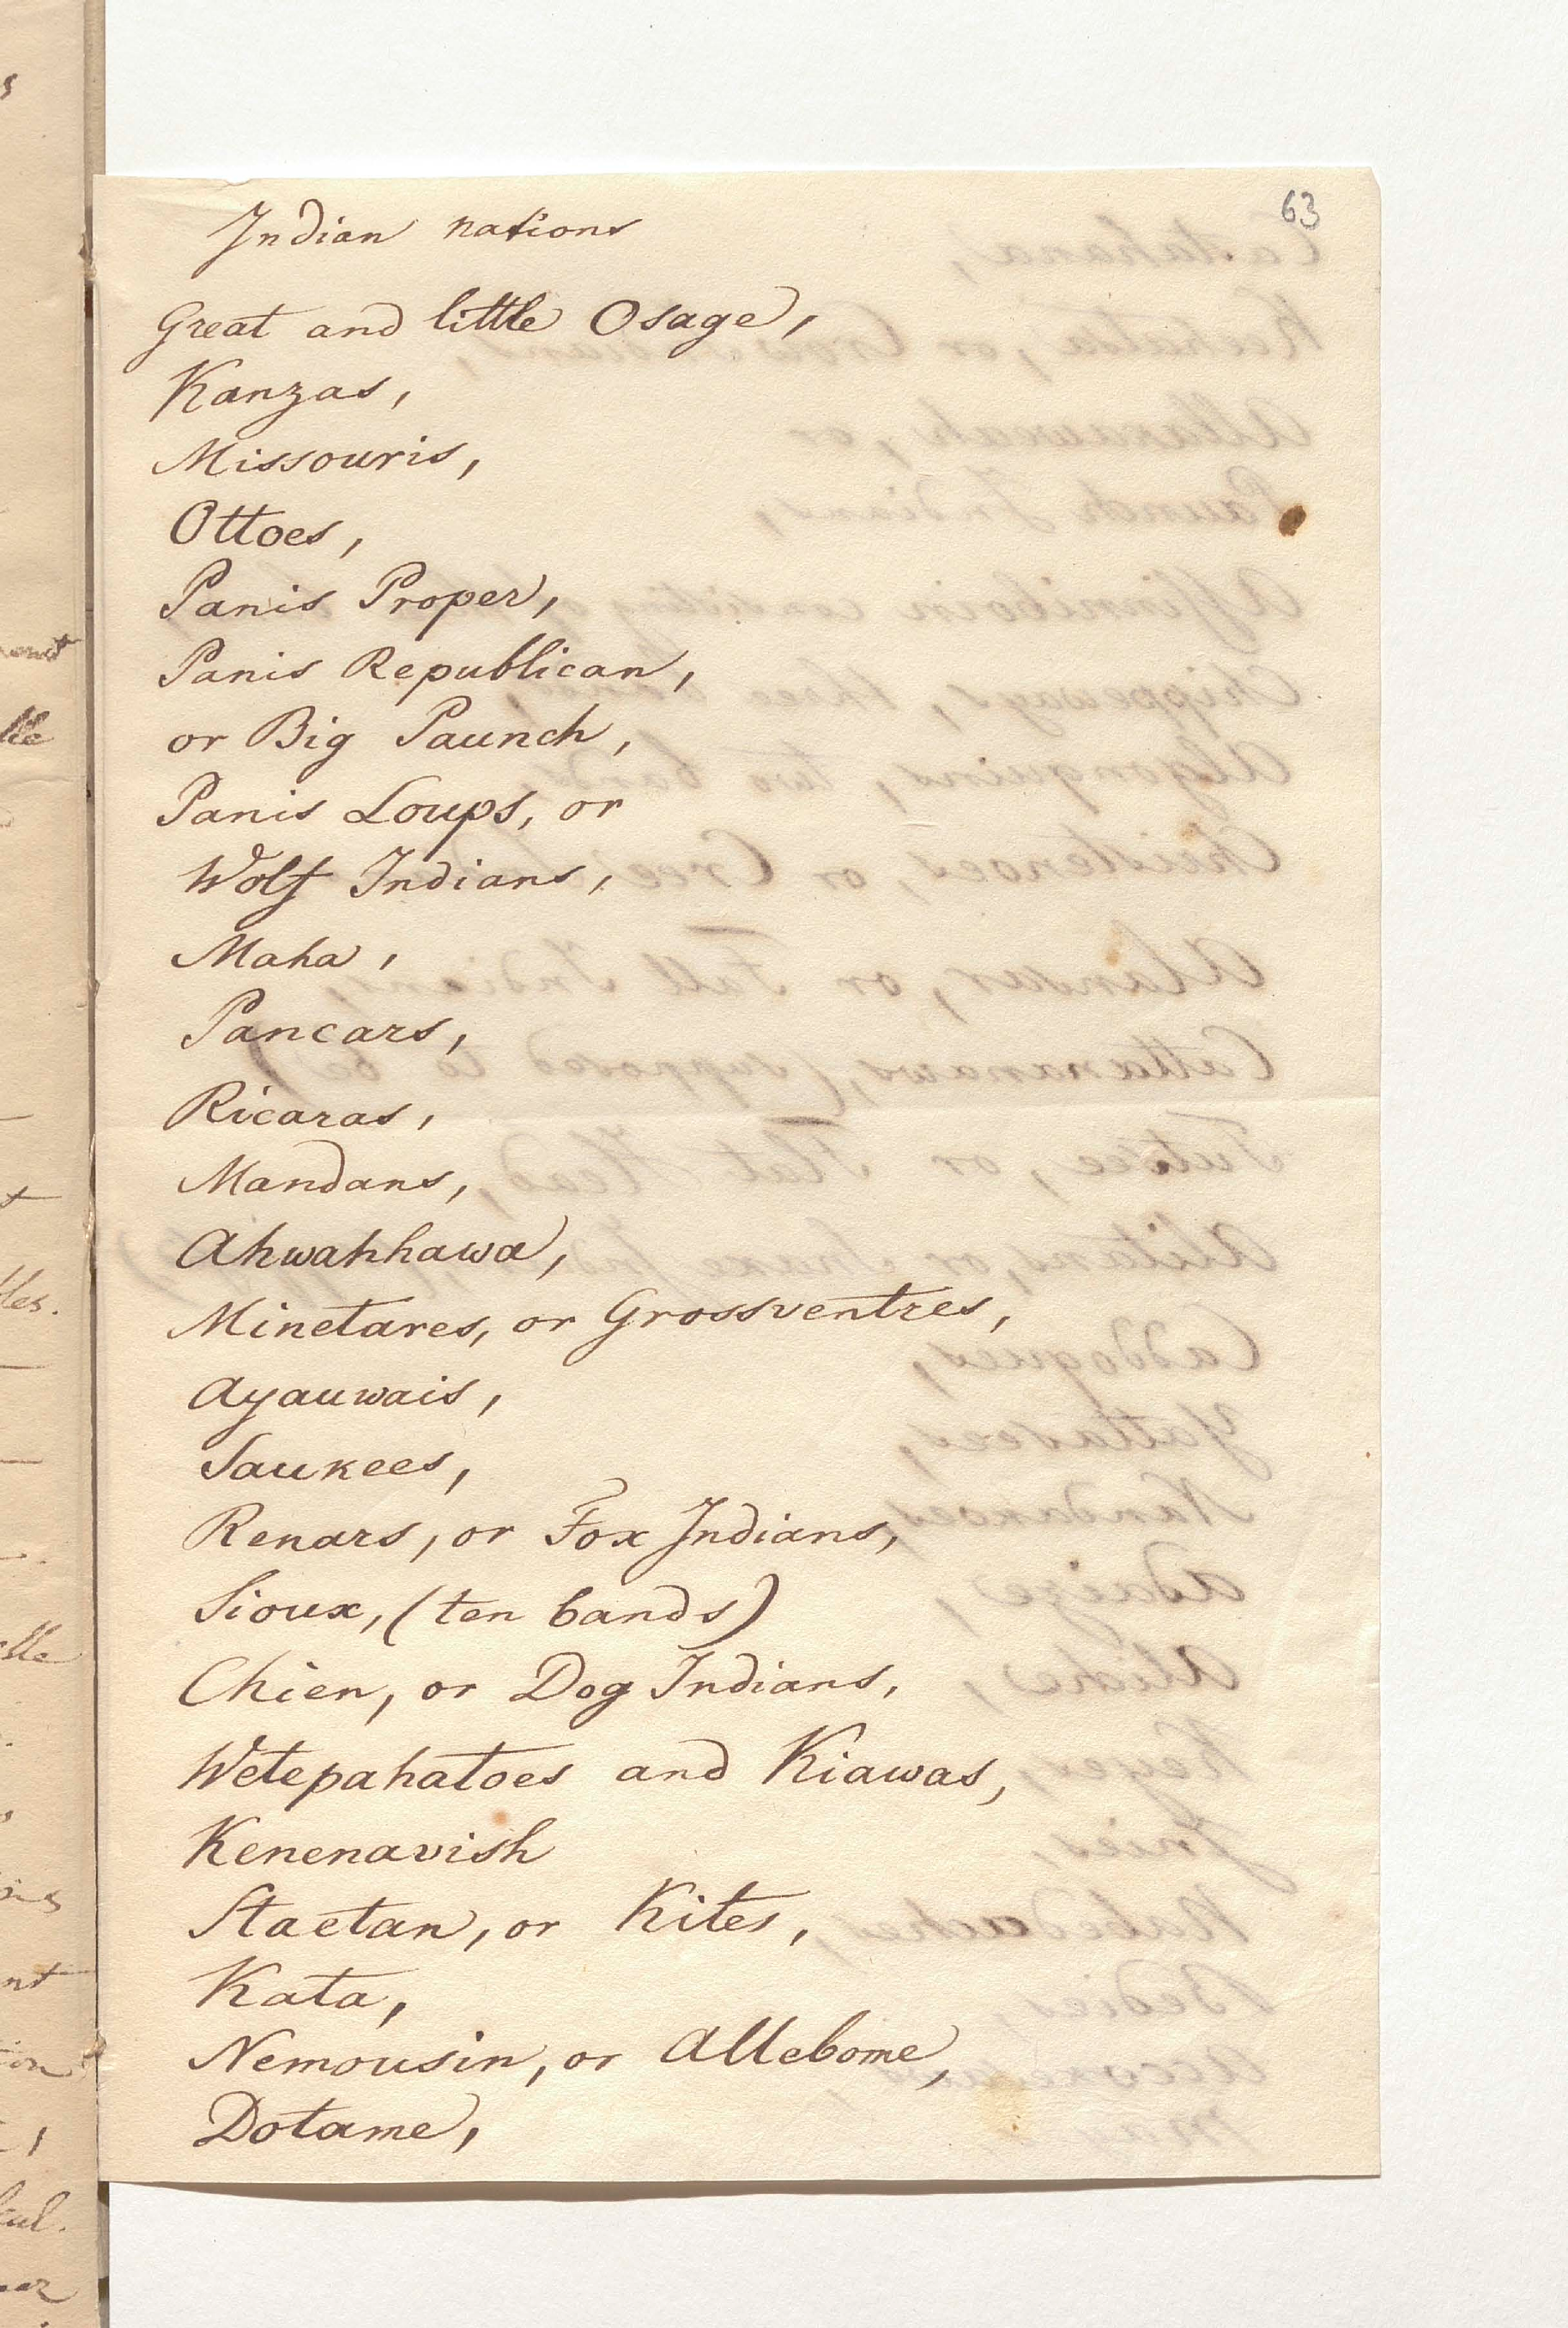 63
Indian nations
Great and little Osage,
Kanzas,
Missouris,
Ottoes,
Panis Proper,
Panis Republican,
or Big Paunch,
Panis Loups, or
Wolf Indians,
Maha,
Pancars,
Ricaras,
Mandans,
Ahwahhawa,
Minetares, or Grossventres,
Ayauwais,
Saukees,
Renars, or Fox Indians,
Sioux, (ten bands)
Chien, or Dog Indians,
Wetepahatoes and Kiawas,
Kenenavish
Staetan, or Kites,
Kata,
Nemousin, or Allebome,
Dotame,